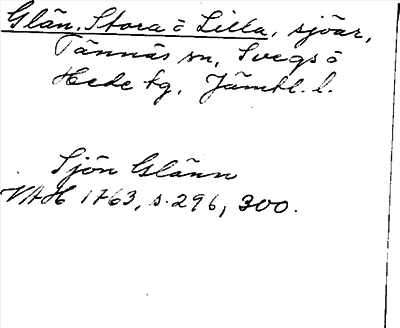 Glän, Stora o Lilla, sjöar,
Tännäs sn, Svegs o
Hede tg, Jämtl. l.
Sjön Glänn
VAH 1763, s. 296, 300.